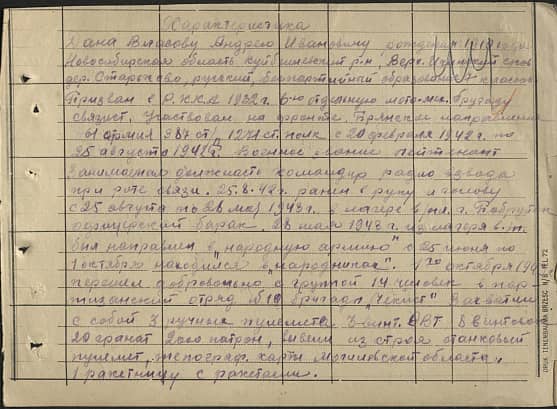 Характеристика
Дана Власову Андрею Ивановичу рождения 1919 года
Новосибирская область Куйбышевский р-н, Верх.
дер. Старогово, русский, беспартийный образование 7 классов
Призван в Р.К.К.А 1932 г. 6-ю отдельную мото-мех. бригаду
связист. Участвовал на фронте. Брянское направление
61 армия 387 ст/д 1271 ст. полк с 20 февраля 1942 г. по
25 августа 1942 г. Военное звание лейтенант
Занимаемая должность командир радио взвода
при роте связи. 25.8.42 г. ранен в руку и голову
с 25 августа по 28 мая 1943 г. в лагере в/пл. г. Бобруйск
офицерский барак. 28 мая 1943 г. из лагеря в/пл.
был направлен в "народную армию" с 25 июня по
1 октября находился в "народниках". 1го октября 194
перешел добровольно с группой 14 человек в пар-
тизанский отряд № 10 бригады "Чекист". Захватили
с собой 3 ручных пулемета 3 винт. СВТ 8 винтовок
20 гранат 2000 патрон, вывели из строя станковый
пулемет, топограф. карты Могилевской области,
1 ракетницу с ракетами.